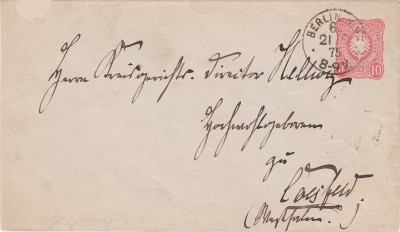 BERLIN
6
21
75
8-9V
10
Herrn Kreisgerichts-Director Hellweg
Hochwohlgeboren
zu
Coesfeld
(Westfalen.)